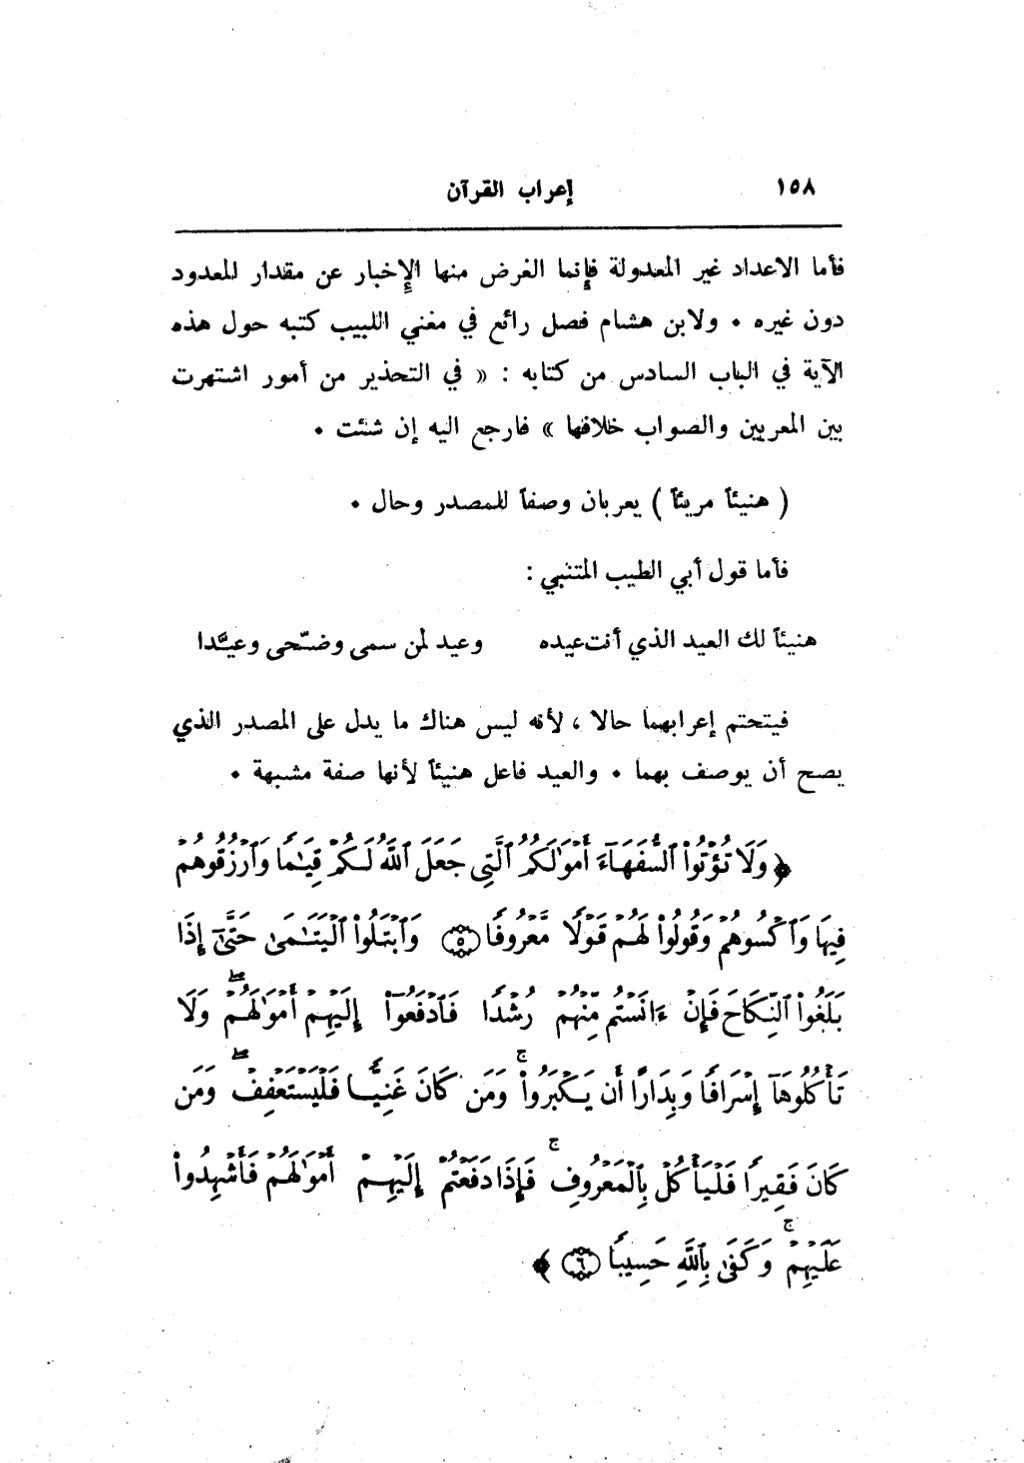 ١٥٨ إعراب القرآن
فأما الاعداد غير المعدولة فإنما الغرض منها الإخبار عن مقدار المعدود
دون غيره . ولابن هشام فصل رائع في مغني اللبيب كتبه حول هذه
الآية في الباب السادس من كتابه : « في التحذير من أمور اشتهرت
بين المعربين والصواب خلافها » فارجع اليه إن شئت .
( هنيئاً مريئاً ) يعربان وصفاً للمصدر وحال .
فأما قول أبي الطيب المتنبي :
هنيئاً لك العيد الذي أنت عيده وعيد لمن سمى وضحّى وعيّدا
فيتحتم إعرابهما حالا ، لأنه ليس هناك ما يدل على المصدر الذي
يصح أن يوصف بهما . والعيد فاعل هنيئاً لأنها صفة مشبهة .
﴿ وَلَا تُؤْتُوا۟ ٱلسُّفَهَآءَ أَمْوَٰلَكُمُ ٱلَّتِى جَعَلَ ٱللَّهُ لَكُمْ قِيَـٰمًا وَٱرْزُقُوهُمْ
فِيهَا وَٱكْسُوهُمْ وَقُولُوا۟ لَهُمْ قَوْلًا مَّعْرُوفًا ۝٥ وَٱبْتَلُوا۟ ٱلْيَتَـٰمَىٰ حَتَّىٰٓ إِذَا
بَلَغُوا۟ ٱلنِّكَاحَ فَإِنْ ءَانَسْتُم مِّنْهُمْ رُشْدًا فَٱدْفَعُوٓا۟ إِلَيْهِمْ أَمْوَٰلَهُمْ ۖ وَلَا
تَأْكُلُوهَآ إِسْرَافًا وَبِدَارًا أَن يَكْبَرُوا۟ ۚ وَمَن كَانَ غَنِيًّا فَلْيَسْتَعْفِفْ ۖ وَمَن
كَانَ فَقِيرًا فَلْيَأْكُلْ بِٱلْمَعْرُوفِ ۚ فَإِذَا دَفَعْتُمْ إِلَيْهِمْ أَمْوَٰلَهُمْ فَأَشْهِدُوا۟
عَلَيْهِمْ ۚ وَكَفَىٰ بِٱللَّهِ حَسِيبًا ۝٦ ﴾